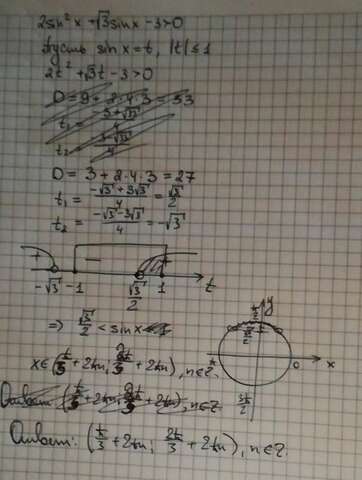 2sin²x + √3sinx - 3 > 0
Пусть sin x = t, |t| ≤ 1
2t² + √3t - 3 > 0
D = 9 + 2·4·3 = 33
t₁ =
t₂ =
D = 3 + 2·4·3 = 27
t₁ = (-√3 + 3√3)/4 = √3/2
t₂ = (-√3 - 3√3)/4 = -√3
+ − +
-√3 -1 √3/2 1 t
⇒ √3/2 < sinx
y
π/2
π 0 x
3π/2
x∈(π/3 + 2πn; 2π/3 + 2πn), n∈Z.
Ответ: (π/3 + 2πn; 2π/3 + 2πn), n∈Z
Ответ: (π/3 + 2πn; 2π/3 + 2πn), n∈Z.